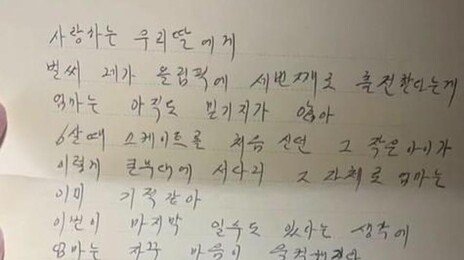 사랑하는 우리딸에게
벌써 네가 올림픽에 세번째로 출전한다는게
엄마는 아직도 믿기지가 않아
6살때 스케이트를 처음 신던 그 작은아이가
이렇게 큰무대에 서다니 그 자체로 엄마는
이미 기적같아
이번이 마지막 일수도 있다는 생각에
엄마는 자꾸 마음이 울컥해진다